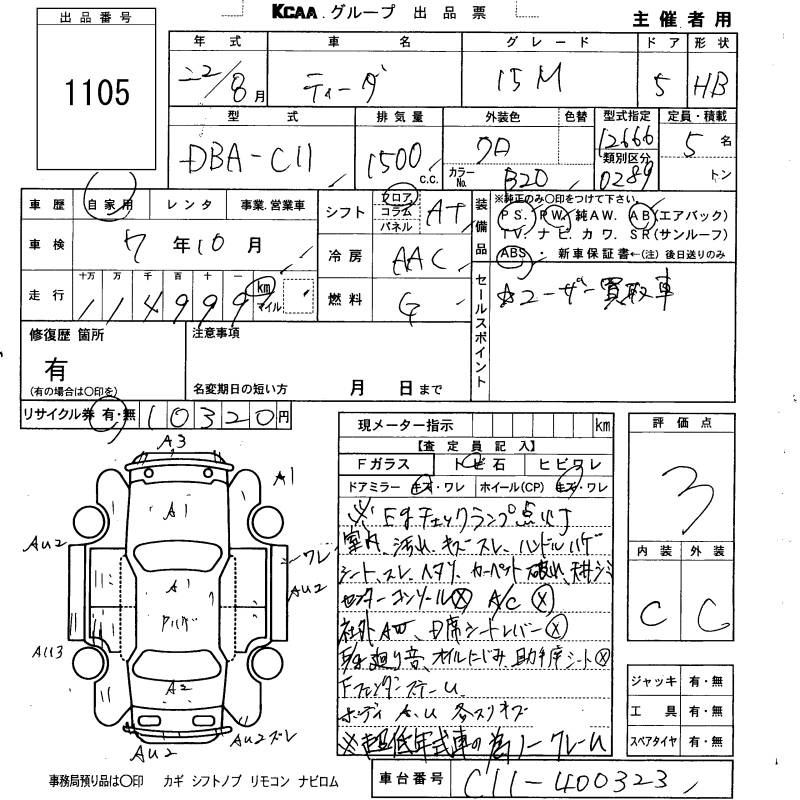 KCAA グループ 出品票
主催者用
出品番号
1105
年式 車名 グレード ドア 形状
22/8月 ティーダ 15M 5 HB
型式 排気量 外装色 色替 型式指定 定員・積載
DBA-C11 1500 c.c. クロ 12666 5名
カラーNo. B20 類別区分 0289 トン
車歴 自家用 レンタ 事業.営業車
車検 7年10月
走行 十万 万 千 百 十 一
114999 km マイル
シフト フロア コラム パネル AT
冷房 AAC
燃料 G
装備品
※純正のみ〇印をつけて下さい。
PS. PW. 純AW. AB(エアバック)
TV. ナビ. カワ. SR(サンルーフ)
ABS・新車保証書←(注)後日送りのみ
セールスポイント
☆ユーザー買取車
修復歴 箇所
有
(有の場合は〇印を)
注意事項
名変期日の短い方 月 日まで
リサイクル券 有・無 10320円
現メーター指示 km
【査定員記入】
Fガラス トビ石 ヒビワレ
ドアミラー キズ・ワレ ホイール(CP) キズ・ワレ
※Egチェックランプ点灯
室内、汚れ、キズ、スレ、ハンドルハゲ
シート、スレ、ヘタリ、カーペット破れ、天井シミ
センターコンソール☓ A/C ☓
社外AW、D席シートレバー☓
廻り音、オイルにじみ、助手席シート☓
Fフェンダーステー U
ボディ A.U 各スリキズ
※超低年式車の為ノークレーム
評価点
3
内装 外装
C C
ジャッキ 有・無
工具 有・無
スペアタイヤ 有・無
A3
A1
A1
AU2
ワレ
A1
AU2
ハゲ
AU3
A2
AU2
AU2ズレ
事務局預り品は〇印 カギ シフトノブ リモコン ナビロム
車台番号 C11-400323